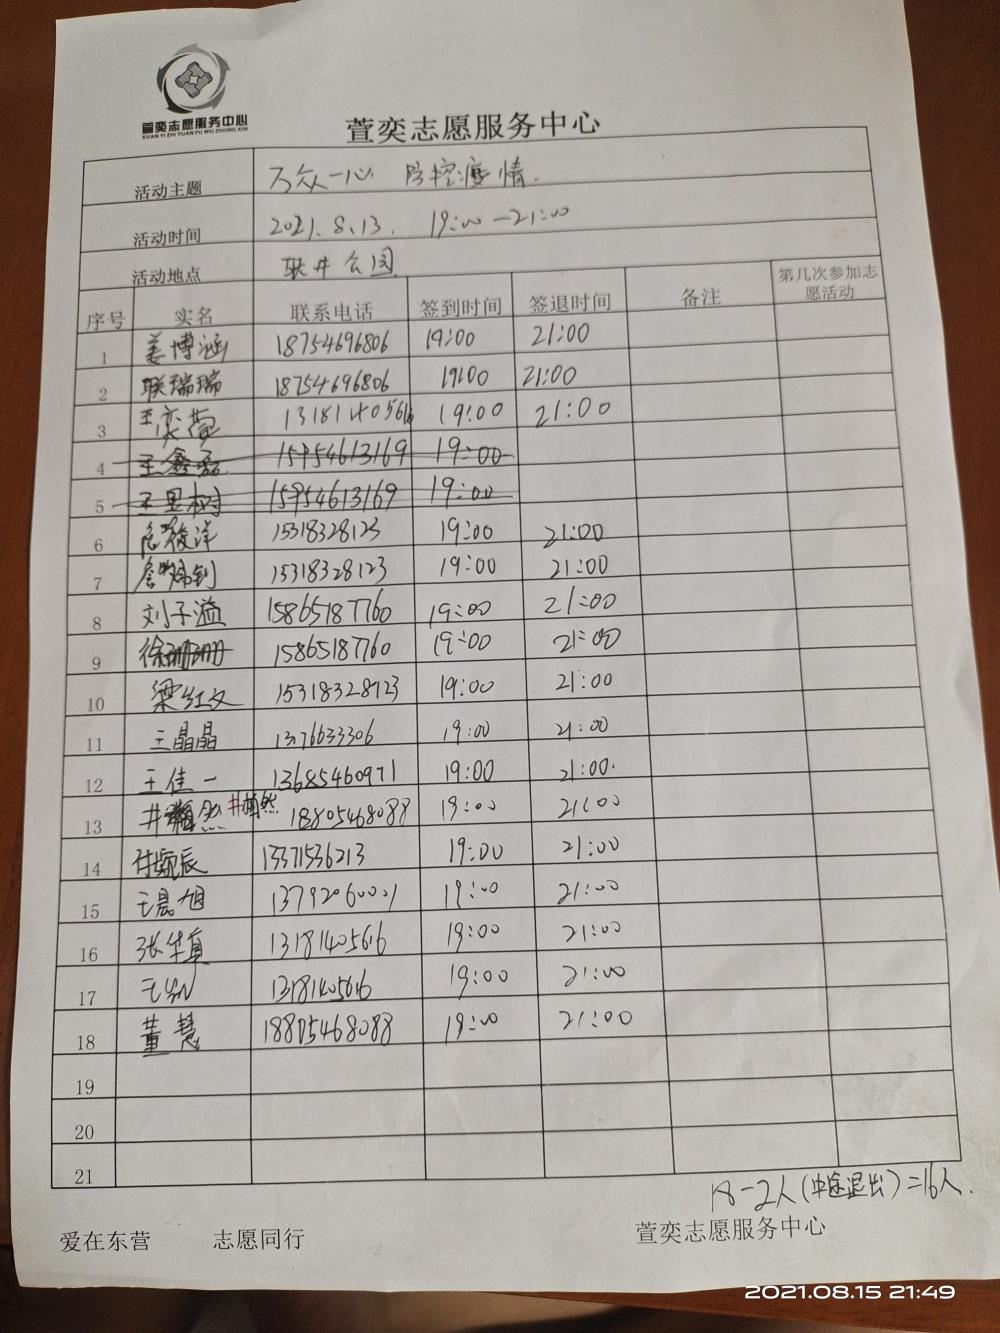 萱奕志愿服务中心
XUAN YI ZHI YUAN FU WU ZHONG XIN
萱奕志愿服务中心
活动主题 万众一心 防控疫情.
活动时间 2021.8.13. 19:00—21:00
活动地点 联井公园
序号 实名 联系电话 签到时间 签退时间 备注 第几次参加志愿活动
1 姜博涵 18754696806 19:00 21:00
2 联瑞瑞 18754696806 19:00 21:00
3 王奕萱 13181405616 19:00 21:00
4 王鑫磊 15954613169 19:00
5 王思树 15954613169 19:00
6 15318328123 19:00 21:00
7 15318328123 19:00 21:00
8 刘子溢 15865187760 19:00 21:00
9 徐珊珊 15865187760 19:00 21:00
10 梁红文 15318328123 19:00 21:00
11 王晶晶 1376633306 19:00 21:00
12 王佳一 13685460971 19:00 21:00.
13 井 然 井楠然 18805468088 19:00 21:00
14 付婉辰 13371536213 19:00 21:00
15 王晨旭 13792060021 19:00 21:00
16 张华真 13181405616 19:00 21:00
17 13181405616 19:00 21:00
18 董慧 18805468088 19:00 21:00
19
20
21
18-2人(中途退出)=16人.
爱在东营 志愿同行 萱奕志愿服务中心
2021.08.15 21:49